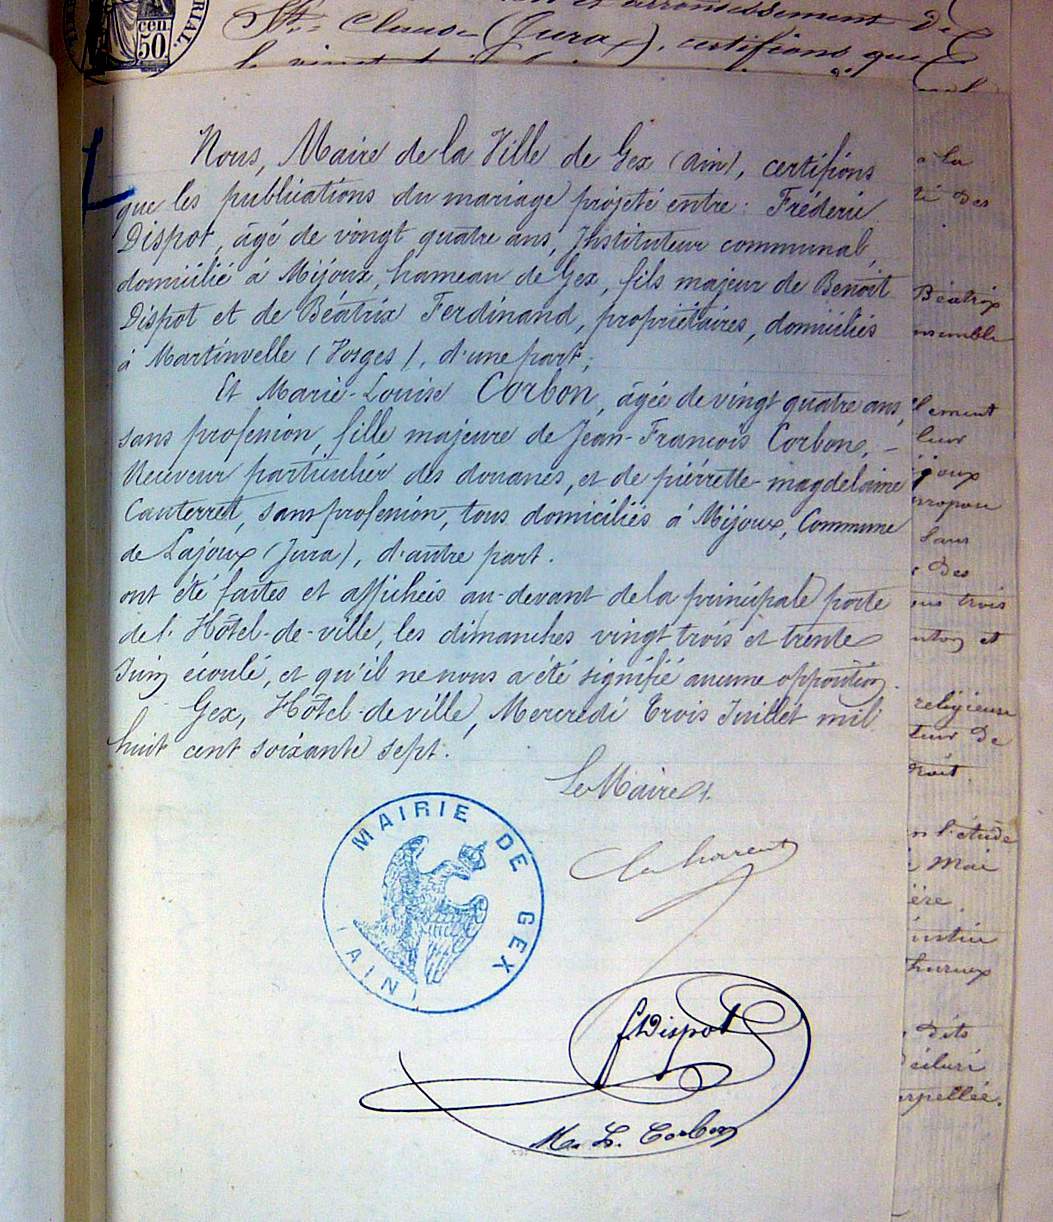 RIAL.
cen.
50
et arrondissement de
St. Claude (Jura), certifions que
le vingt
Nous, Maire de la Ville de Gex (Ain), certifions
que les publications du mariage projeté entre : Fréderic
Dispot, âgé de vingt quatre ans, Instituteur communal,
domicilié à Mijoux, hameau de Gex, fils majeur de Benoit
Dispot et de Béatrix Ferdinand, propriétaires, domiciliés
à Martinvelle (Vosges), d'une part;
Et Marie-Louise Corbon, âgée de vingt quatre ans,
sans profession, fille majeure de Jean-François Corbon, -
Receveur particulier des douanes, et de pierrette magdelaine
Canterret, sans profession, tous domiciliés à Mijoux, Commune
de Lajoux (Jura), d'autre part.
ont été faites et affichées au-devant de la principale porte
de l'Hôtel-de-ville, les dimanches vingt trois et trente
Juin écoulé, et qu'il ne nous a été signifié aucune opposition.
Gex, Hôtel-de ville, Mercredi Trois Juillet mil
huit cent soixante sept.
Le Maire
MAIRIE DE GEX
(AIN)
f Dispot
M. L. Corbon
à la
des
Béatrix
ensemble
leur
Sans
des
trois
et
religieuse
de
droit.
l'étude
Mai
dits